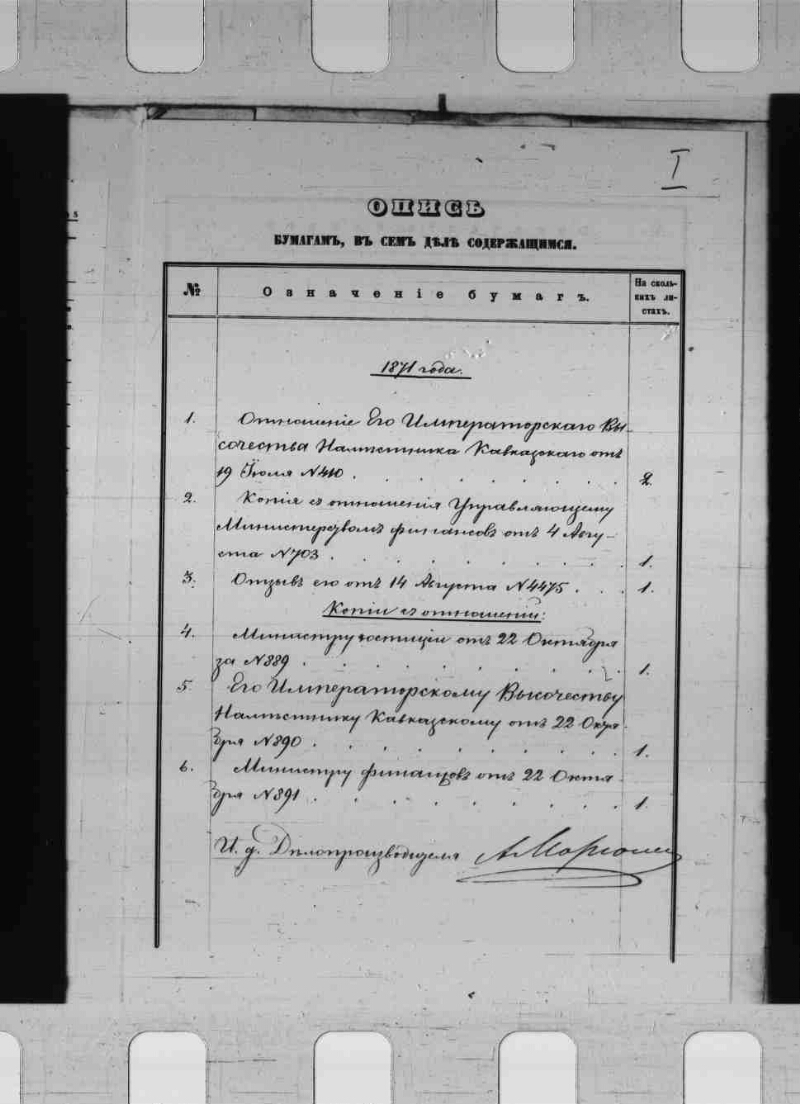 I
ОПИСЬ
БУМАГАМЪ, ВЪ СЕМЪ ДѢЛѢ СОДЕРЖАЩИМСЯ.
№ Означеніе бумагъ. На сколь-
кихъ ли-
стахъ.
1871 года.
1. Отношеніе Его Императорскаго Вы-
сочества Намѣстника Кавказскаго отъ
19 Іюля №410 . . . . . . . 2.
2. Копія съ отношенія Управляющему
Министерствомъ финансовъ отъ 4 Авгу-
ста №703 . . . . . . . . 1.
3. Отзывъ его отъ 14 Августа №4475 . . . 1.
Копіи съ отношеній:
4. Министру юстиціи отъ 22 Октября
за №889 . . . . . . . . 1.
5. Его Императорскому Высочеству
Намѣстнику Кавказскому отъ 22 Октя-
бря №890 . . . . . . . . 1.
6. Министру финансовъ отъ 22 Октя-
бря №891 . . . . . . . . 1.
И. д. Дѣлопроизводителя